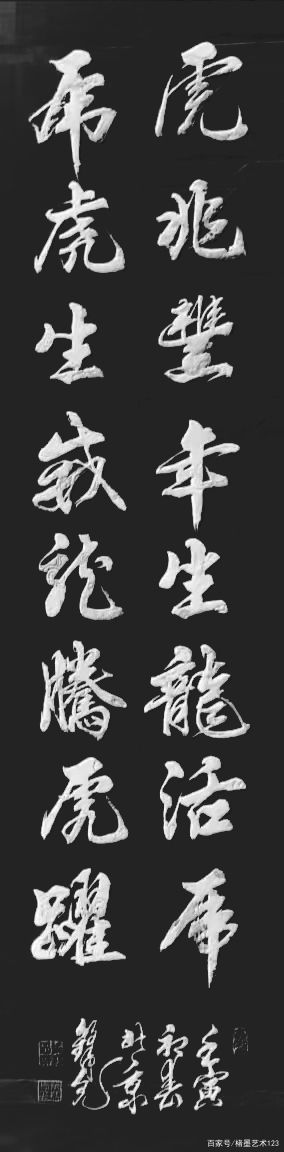 虎兆豐年生龍活虎
虎虎生威龍騰虎躍
壬寅
初春
京
錦
百家号/楮墨艺术123